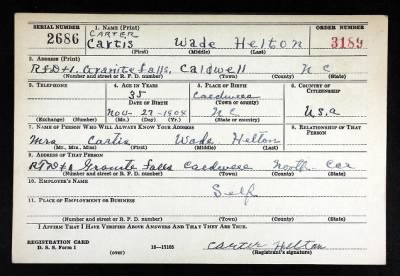 SERIAL NUMBER 1. NAME (Print) ORDER NUMBER
CARTER
2686 Cartis Wade Helton 3189
(First) (Middle) (Last)
2. ADDRESS (Print)
RFD#1. Granite Falls, Caldwell N C
(Number and street or R. F. D. number) (Town) (County) (State)
3. TELEPHONE 4. AGE IN YEARS 5. PLACE OF BIRTH 6. COUNTRY OF CITIZENSHIP
35 Caldwell
DATE OF BIRTH (Town or county)
Nov- 27-1904 N C U.S.A
(Exchange) (Number) (Mo.) (Day) (Yr.) (State or country)
7. NAME OF PERSON WHO WILL ALWAYS KNOW YOUR ADDRESS 8. RELATIONSHIP OF THAT PERSON
Mrs Cartis Wade Helton
(Mr., Mrs., Miss) (First) (Middle) (Last)
9. ADDRESS OF THAT PERSON
RFD#1 Granite Falls Caldwell North Car
(Number and street or R. F. D. number) (Town) (County) (State)
10. EMPLOYER'S NAME
Self
11. PLACE OF EMPLOYMENT OR BUSINESS
(Number and street or R. F. D. number) (Town) (County) (State)
I AFFIRM THAT I HAVE VERIFIED ABOVE ANSWERS AND THAT THEY ARE TRUE.
REGISTRATION CARD
D. S. S. Form 1 (over) 16—17105 Carter Helton
(Registrant's signature)